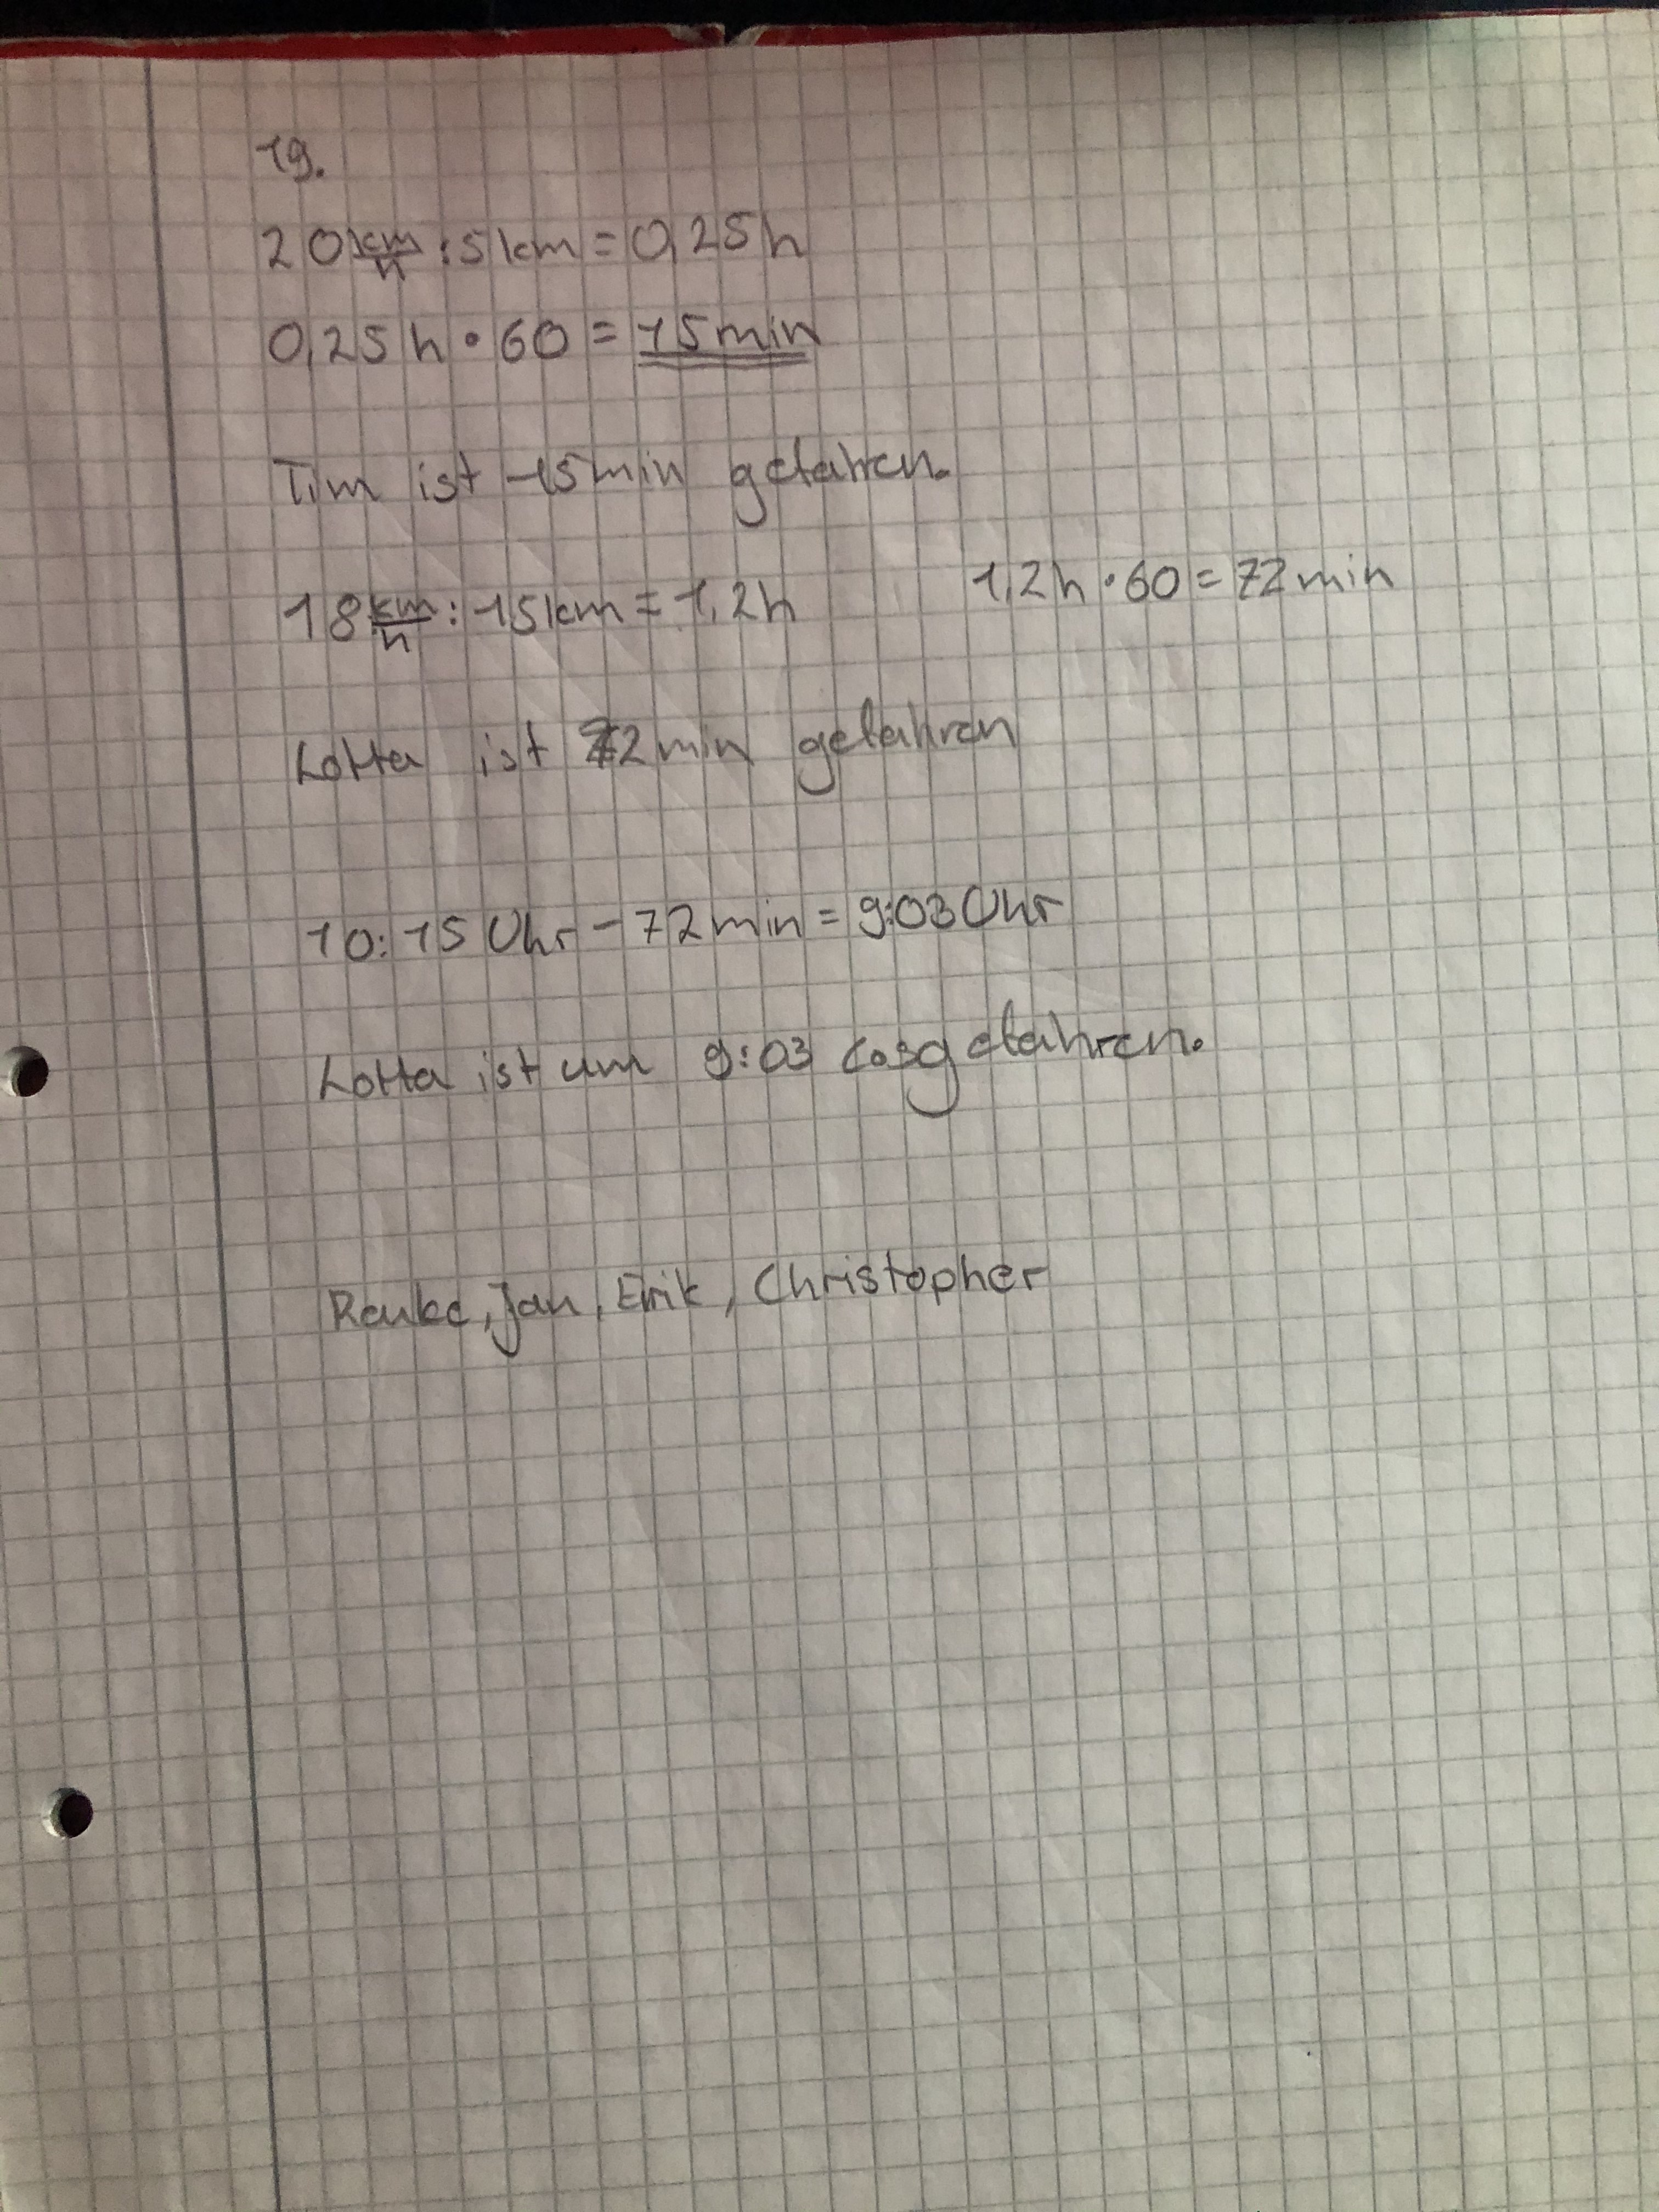 19.
20 km/h : 5 km = 0,25 h
0,25 h · 60 = 15 min
Tim ist 15 min gefahren.
18 km/h : 15 km = 1,2 h 1,2 h · 60 = 72 min
Lotta ist 72 min gefahren
10:15 Uhr - 72 min = 9:03 Uhr
Lotta ist um 9:03 losgefahren.
Renke, Jan, Erik, Christopher